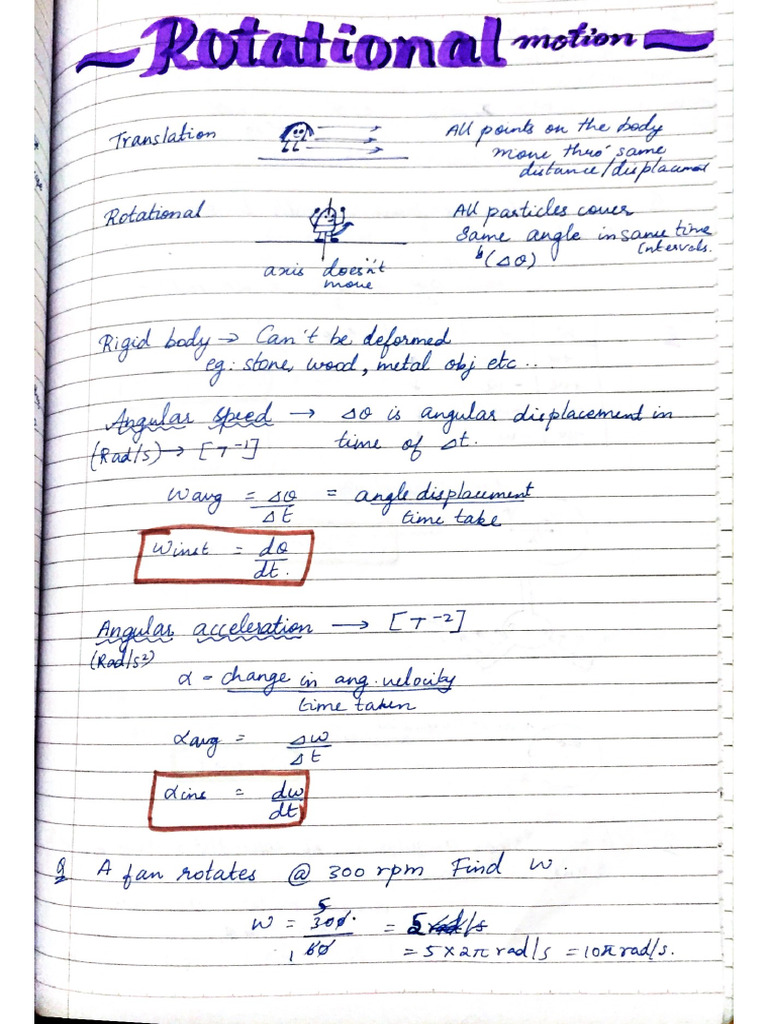 Rotational motion
Translation
All points on the body
move thro' same
distance/displacement
Rotational
All particles cover
same angle in same time
intervals.
↳(Δθ)
axis doesn't
move
Rigid body → Can't be deformed
eg: stone, wood, metal obj etc...
Angular speed → Δθ is angular displacement in
(Rad/s) → [T⁻¹] time of Δt.
ωavg = Δθ/Δt = angle displacement/time take
ωinst = dθ/dt.
Angular acceleration → [T⁻²]
(Rad/s²)
α = change in ang. velocity/time taken
αavg = Δω/Δt
αins = dω/dt
Q A fan rotates @ 300 rpm Find ω.
ω = 300/60 = 5
5
1
= 5×2π rad/s = 10π rad/s.